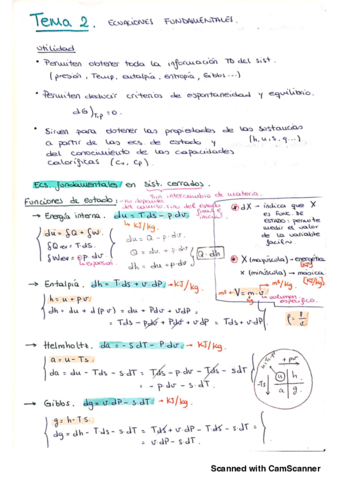 Tema 2. ECUACIONES FUNDAMENTALES.
Utilidad
• Permiten obtener toda la información TD del sist.
(presión, Temp, entalpía, entropía, Gibbs...)
• Permiten deducir criterios de espontaneidad y equilibrio.
dG)T,p = 0.
• Sirven para obtener las propiedades de las sustancias
a partir de las ecs de estado y (h, u, s, g...)
del conocimiento de las capacidades
caloríficas (Cv, Cp).
Ecs. fundamentales en sist. cerrados.
Sin intercambio de materia.
Funciones de estado:
→ Energía interna. du = T·ds - p·dv
→ KJ/kg.
du = δQ + δW.
δQrev = T·ds.
du = Q - p·dv
Q = du + p·dv
dh = du + p·dv
Q = dh
* dX → indica que X
es FUNC. DE
ESTADO: permite
medir el valor
de la variable
fácilm.
* X (mayúscula) - energética
x (minúscula) → másica
(KJ/kg)
→ Entalpía. dh = T·ds + v·dP → KJ/kg.
h = u + p·v
dh = du + d(p·v) = du + Pdv + v·dP =
= Tds - Pdv + Pdv + v·dP = Tds + v·dP
m³ ← V = m·v → m³/kg
volumen
específico.
ρ = 1/v
→ Helmholtz. da = -s·dT - P·dv → KJ/kg.
a = u - Ts.
da = du - Tds - s·dT = Tds - p·dv - Tds - s·dT
= -p·dv - s·dT.
+pv
Ts
u h
a g
→ Gibbs. dg = v·dP - s·dT → KJ/kg
g = h - Ts.
dg = dh - Tds - s·dT = Tds + v·dP - Tds - s·dT =
= v·dP - s·dT.
Scanned with CamScanner